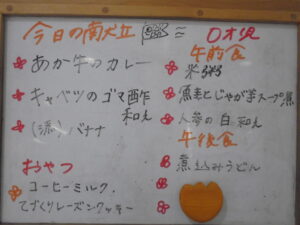 今日の献立
あか牛のカレー
キャベツのゴマ酢和え
(流) バナナ
おやつ
コーヒーミルク.
てづくりレーズンクッキー
0才児
午前食
米粥
魚とじゃが芋スープ煮
人参の白和え
午後食
煮込みうどん